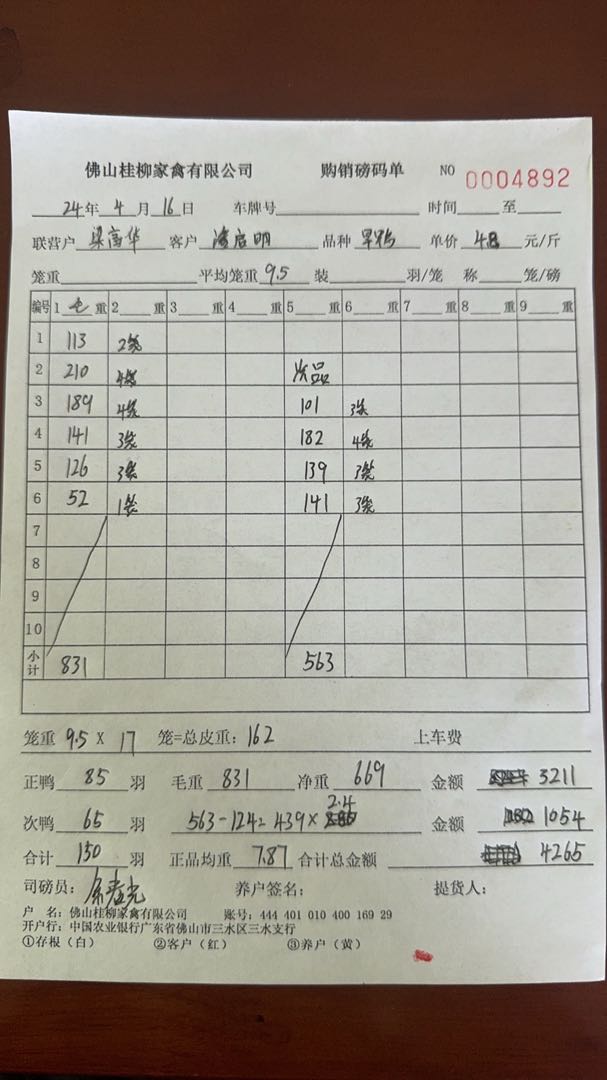 佛山桂柳家禽有限公司 购销磅码单 NO 0004892
24年 4 月 16 日 车牌号 时间 至
联营户 梁高华 客户 启明 品种 单价 4.8 元/斤
笼重 平均笼重 9.5 装 羽/笼 称 笼/磅
编号 1 毛 重 2 重 3 重 4 重 5 重 6 重 7 重 8 重 9 重
1 113 2笼
2 210 4笼 次品
3 189 4笼 101 3笼
4 141 3笼 182 4笼
5 126 3笼 139 3笼
6 52 1笼 141 3笼
7
8
9
10
小计 831 563
笼重 9.5 X 17 笼=总皮重: 162 上车费
正鸭 85 羽 毛重 831 净重 669 金额 3211
次鸭 65 羽 563-124=439× 2.4 金额 1054
合计 150 羽 正品均重 7.87 合计总金额 4265
司磅员: 养户签名: 提货人:
户 名: 佛山桂柳家禽有限公司 账号: 444 401 010 400 169 29
开户行: 中国农业银行广东省佛山市三水区三水支行
①存根(白) ②客户(红) ③养户(黄)